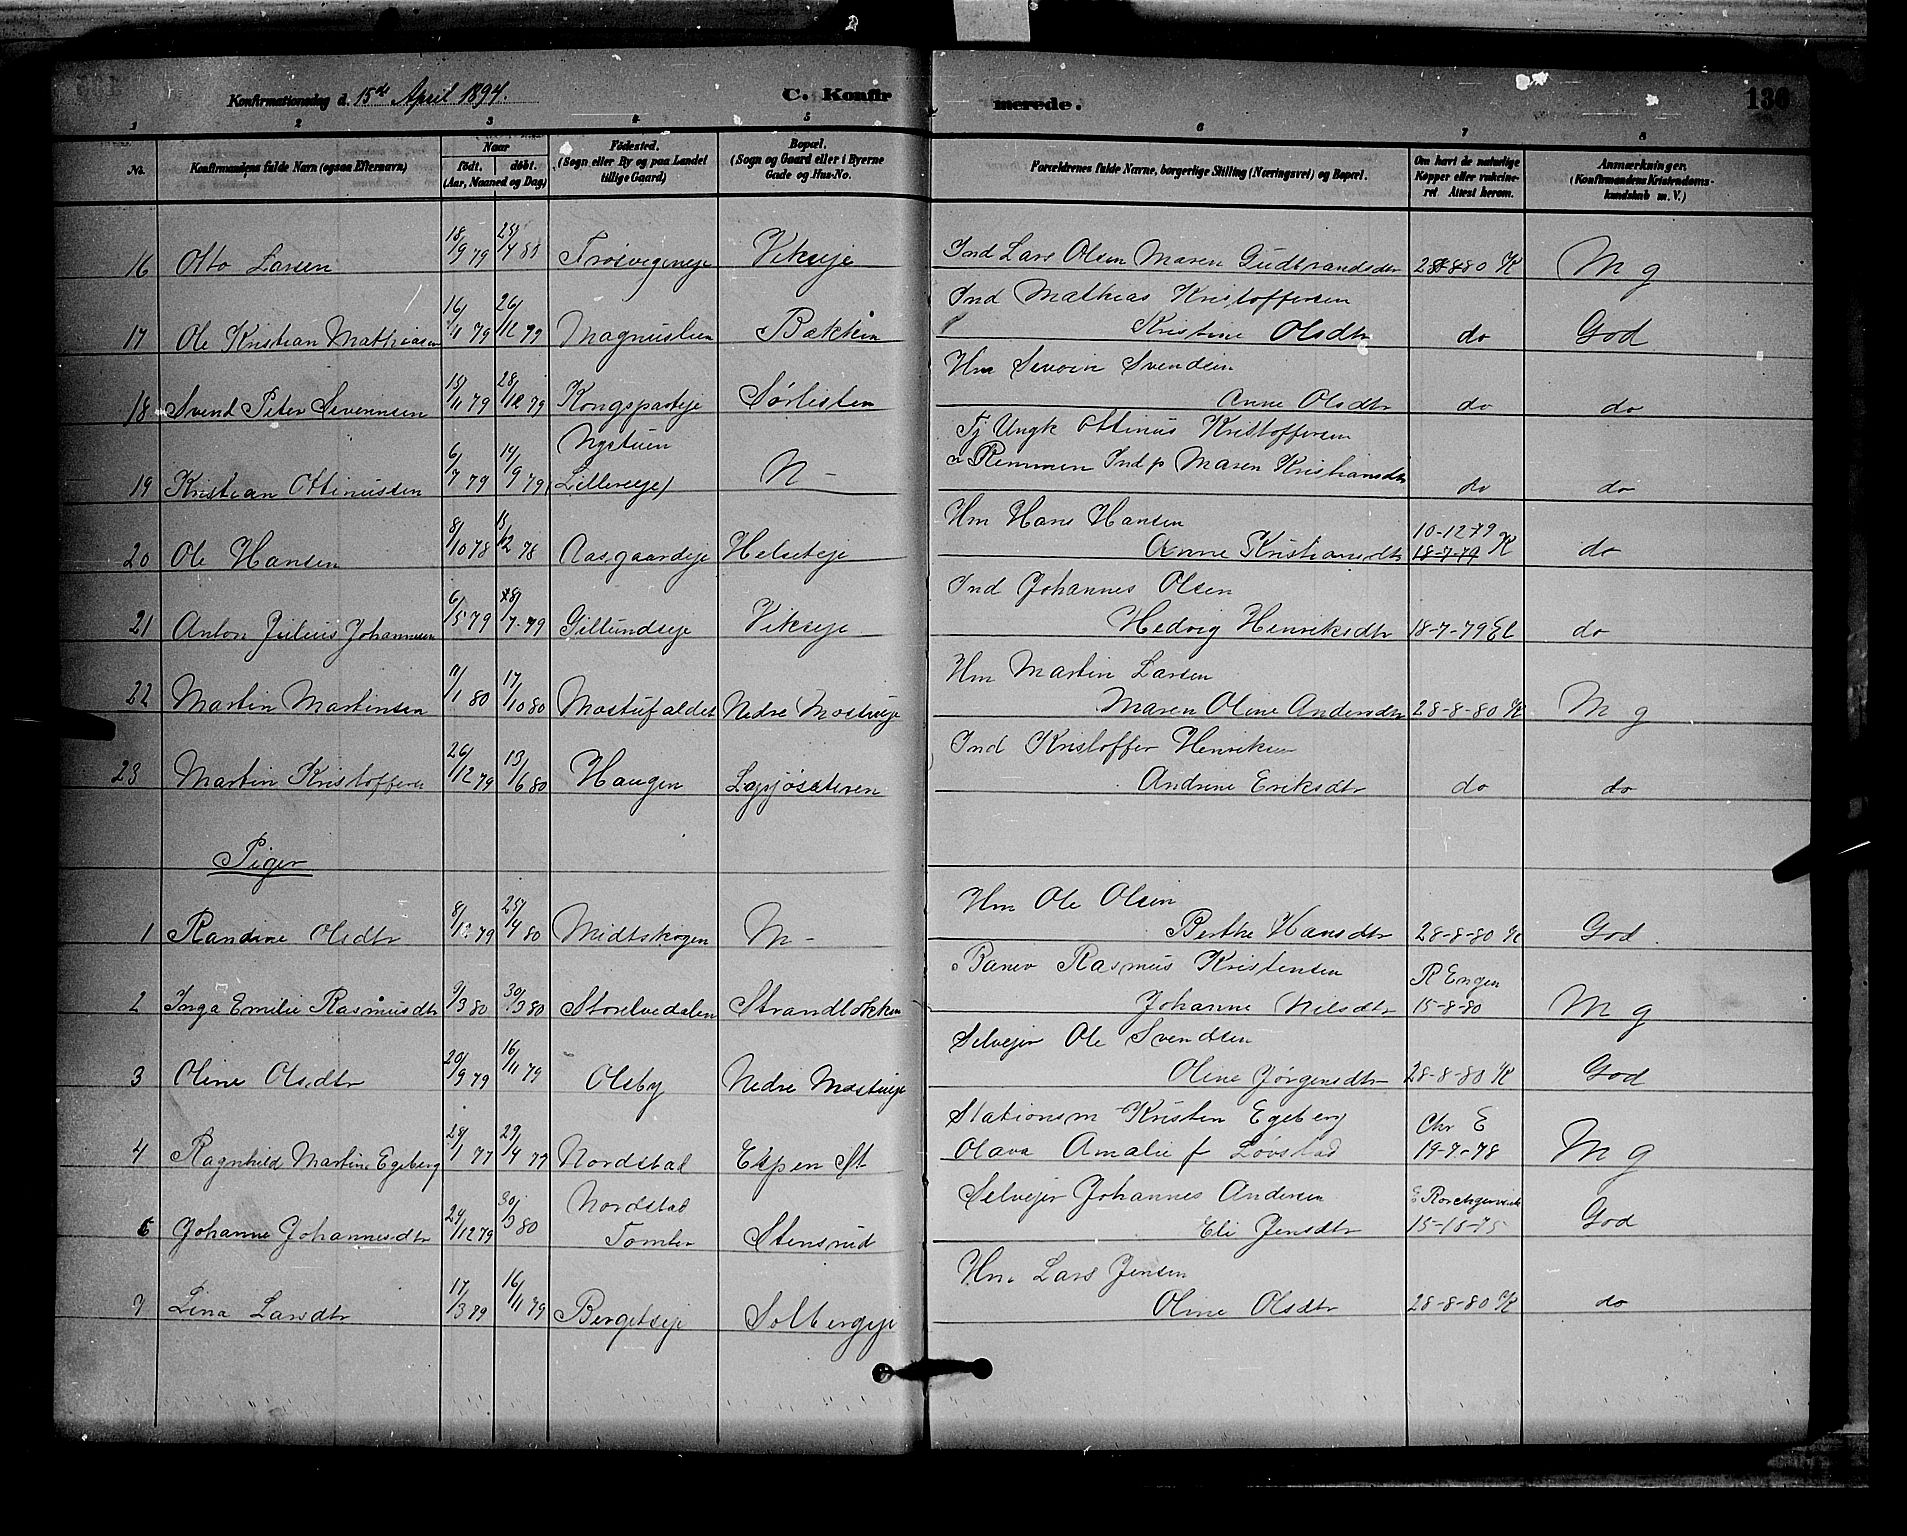 Konfirmationsdag d. 15de April 1894.
C. Konfirmerede.
130
1 2 3 4 5 6 7 8
No. Konfirmandens fulde Navn (ogsaa Efternavn) Naar født. døbt. (Aar, Maaned og Dag) Fødested. (Sogn eller By og paa Landet tillige Gaard) Bopæl. (Sogn og Gaard eller i Byerne Gade og Hus-No. Forældrenes fulde Navne, borgerlige Stilling (Næringsvei) og Bopæl. Om havt de naturlige Kopper eller vakcineret Attest herom. Anmærkninger. (Konfirmandens Kristendomskundskab m. V.)
16 Otto Larsen 18/9 79 25/4 80 Trøsvigeneje Vikseje Ind Lars Olsen Maren Gudbrandsdtr 28-8 80 K M g
17 Ole Kristian Mathiasen 16/11 79 26/12 79 Magnuslien Bækken Ind Mathias Kristoffersen
Kristine Olsdtr do God
18 Svend Peter Severinsen 15/11 79 28/12 79 Kongsparteje Sørlisten Hm Severin Svendsen
Anne Olsdtr do do
19 Kristian Ottinussen 6/7 79 14/9 79 Nystuen (Lillereje) N - Tj Ungk Ottinus Kristoffersen
Remmen Ind p Maren Kristiansdtr do do
20 Ole Hansen 8/10 78 15/12 78 Aasgaardeje Helseteje Hm Hans Hansen
Anne Kristiansdtr 10-12 79 18-7-79 K do
21 Anton Julius Johannesen 6/5 79 /7-79 Gillundseje Vikseje Ind Johannes Olsen
Hedvig Henriksdtr 18-7-79 El do
22 Martin Martinsen 11/1 80 17/10 80 Mostufaldet Nedre Mostueje Hm Martin Larsen
Maren Oline Andersdtr 28-8-80 K M g
23 Martin Kristoffersen 26/12 79 13/6 80 Haugen Løpsjøsæteren Ind Kristoffer Henriksen
Andrine Eriksdtr do do
Piger
1 Randine Olsdtr 8/12 79 25/4 80 Midtskogen M - Hm Ole Olsen
Berthe Hansdtr 28-8-80 K God
2 Inga Emilie Rasmusdtr 9/3 80 30/3 80 Storelvedalen Strandløkken Banev Rasmus Kristensen
Johanne Nilsdtr R Engen 15-8-80 M g
3 Oline Olsdtr 20/9 79 16/11 79 Olsby Nedre Mostueje Selvejer Ole Svendsen
Oline Jørgensdtr 28-8-80 K God
4 Ragnhild Martine Egeberg 28/1 77 29/4 77 Nordstad Espen St Stationsm Kristen Egeberg
Olava Amalie f Løvstad Chr E 19-7-78 M g
6 Johanne Johannesdtr 29/12 79 30/3 80 Nordstad Tomter Stensrud Selvejer Johannes Andersen
Eli Jensdtr God
7 Lina Larsdtr 17/3 89 16/11 79 Bergetseje Solbergeje Hm. Lars Jensen
Oline Olsdtr 28-8-80 K do